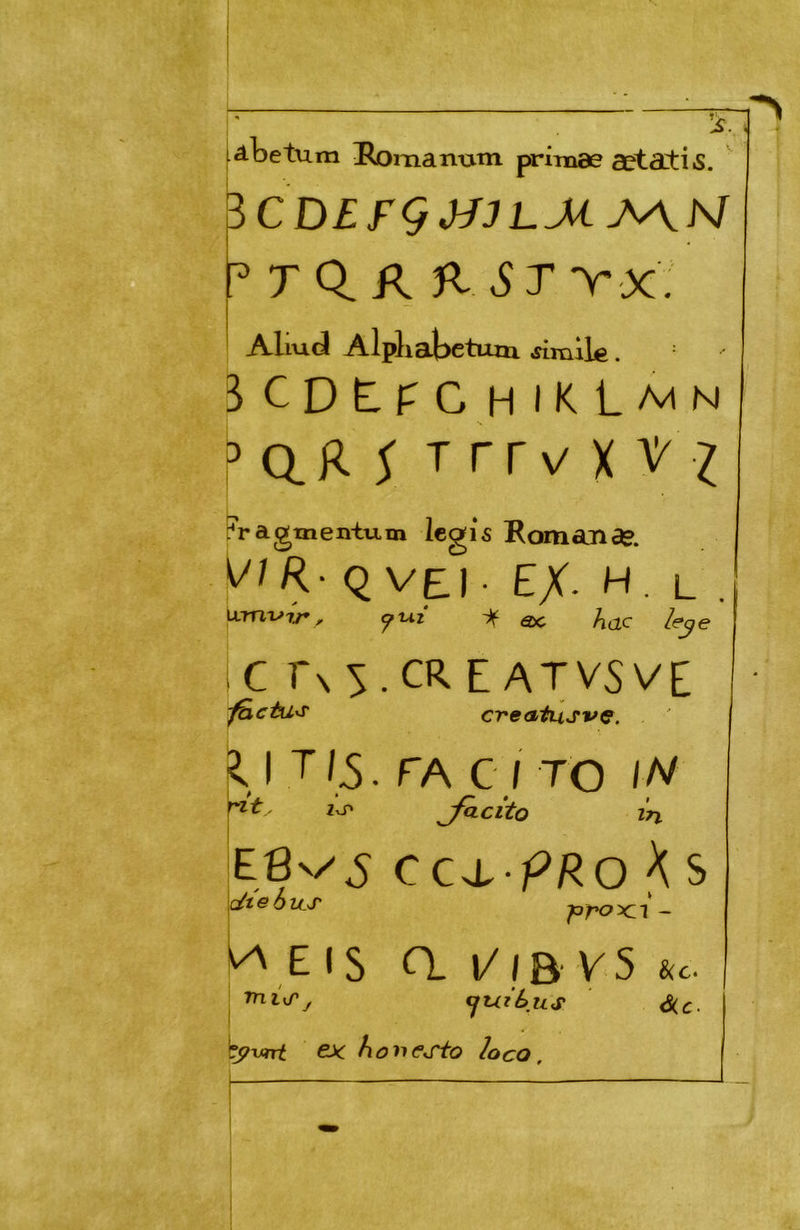 5.
abetum Romanum primæ ætatis.
B C D E F G H I L M M N
P T Q R R S T Y X.
Aliud Alphabetum simile.
B C D E F G H I K L M N
P Q R S T T T V X Y Z
Fragmentum legis Romanæ.
VIR · QVEI · EX · H . L .
umvir, qui * ex hac lege
CTVS . CREATVSVE
factus creatusve.
RITIS . FACITO IN
rit, is facito in
EBVS CCL · PROXS
diebus proxi-
MEIS QVIBVS &c.
mis, quibus &c.
ex honesto loco,